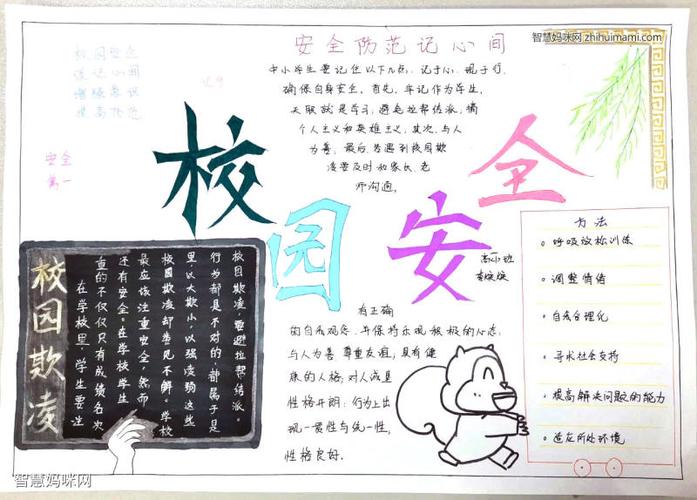 智慧妈咪网 zhihuimami.com
安全防范记心间
中小学生要记住以下几点,记于心,现于行,
确保自身安全,首先,牢记作为学生,
天职就是学习,避免拉帮结派,搞
个人主义和英雄主义,其次,与人
为善,最后,若遇到校园欺
凌要及时和家长、老
师沟通。
校园安全
增强意识
提高防范
安全
第一
校园安全
校园欺凌
校园欺凌,要避拉帮结派,
行为都是不对的,都属于是
里,以大欺小,以强凌弱这些
校园欺凌却常见不鲜。学校
最应该注重安全,然而
还有安全。在学校学生
重的不仅仅只有成绩名次
在学校里,学生要注
有正确
的自我观念,并保持乐观积极的心态;
与人为善,尊重友谊,具有健
康的人格;对人诚显
性格开朗;行为上出
现一属性与统一性,
性格良好。
方法
呼吸放松训练
调整情绪
自我合理化
寻求社会支持
提高解决问题的能力
适应所处环境
智慧妈咪网